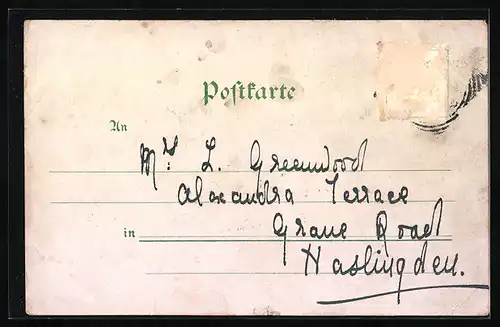 Postkarte
An
Mrs L. Greenwood
Alexandra Terrace
in Grane Road
Haslingden.